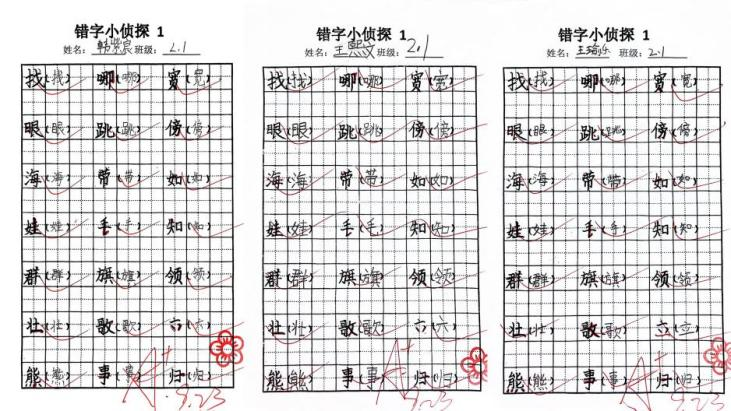 错字小侦探 1
姓名： 班级：2.1
找(找) 哪(哪) 宽(宽)
眼(眼) 跳(跳) 傍(傍)
海(海) 带(带) 如(如)
娃(娃) 手(手) 知(知)
群(群) 旗(旗) 领(领)
壮(壮) 歌(歌) 六(六)
熊(熊) 事(事) 归(归)
A+
9.23
错字小侦探 1
姓名：王熙文 班级：2.1
找(找) 哪(哪) 宽(宽)
眼(眼) 跳(跳) 傍(傍)
海(海) 带(带) 如(如)
娃(娃) 毛(毛) 知(知)
群(群) 旗(旗) 领(领)
壮(壮) 歌(歌) 六(六)
熊(熊) 事(事) 归(归)
A+
9.23
错字小侦探 1
姓名： 班级：2.1
找(找) 哪(哪) 宽(宽)
眼(眼) 跳(跳) 傍(傍)
海(海) 带(带) 如(如)
娃(娃) 手(手) 知(知)
群(群) 旗(旗) 领(领)
壮(壮) 歌(歌) 立(立)
熊(熊) 事(事) 归(归)
A+
9.23